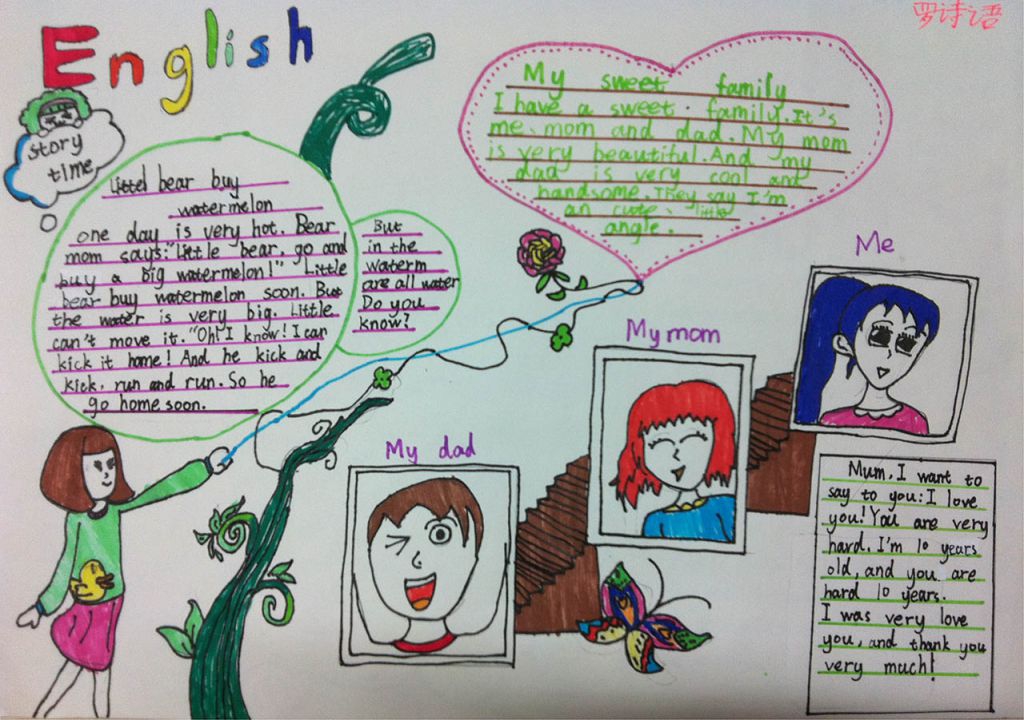 English
罗诗语
story
time
Littel bear buy
watermelon
one day is very hot. Bear
mom says:"Little bear, go and
buy a big watermelon!" Little
bear buy watermelon soon. But
the water is very big. Little
can't move it. "Oh! I know! I can
kick it home! And he kick and
kick, run and run. So he
go home soon.
But
in the
waterm
are all water
Do you
know?
My sweet family
I have a sweet. family. It's
me、mom and dad. My mom
is very beautiful. And my
dad is very cool and
handsome. They say I'm
an cute little
angle.
Me
My mom
My dad
Mum, I want to
say to you: I love
you! You are very
hard. I'm 10 years
old, and you are
hard 10 years.
I was very love
you, and thank you
very much!